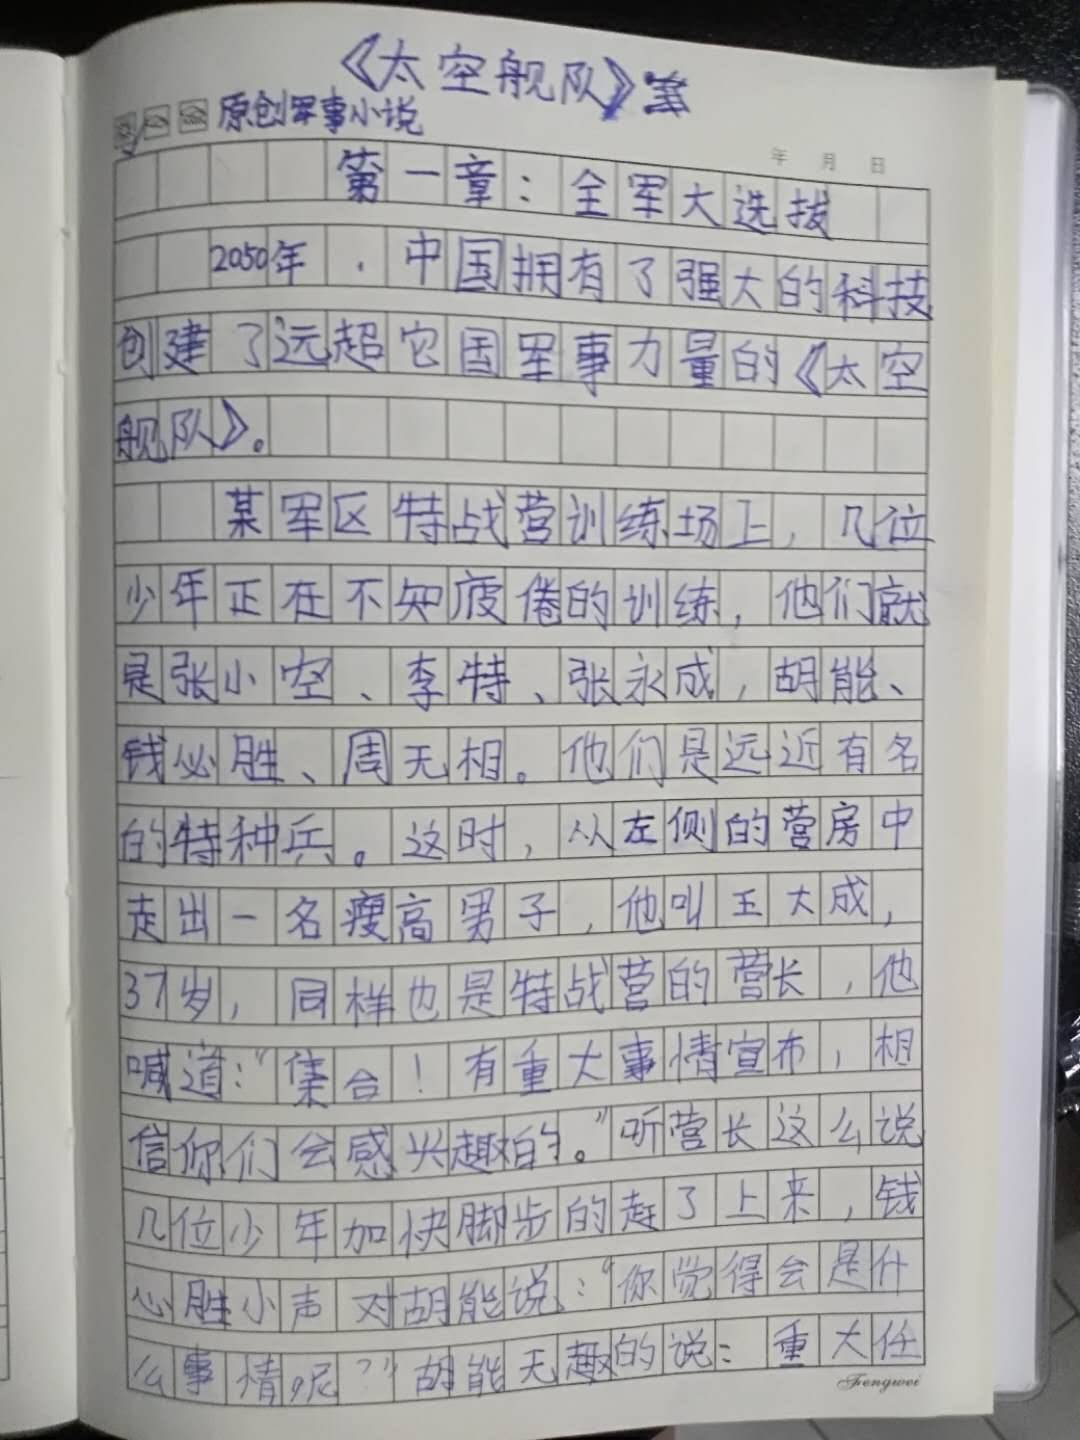 《太空舰队》
原创军事小说
年 月 日
第一章：全军大选拔
2050年，中国拥有了强大的科技
创建了远超它国军事力量的《太空
舰队》。
某军区特战营训练场上，几位
少年正在不知疲倦的训练，他们就
是张小空、李特、张永成，胡能、
钱必胜、周无相。他们是远近有名
的特种兵。这时，从左侧的营房中
走出一名瘦高男子，他叫王大成，
37岁，同样也是特战营的营长，他
喊道：“集合！有重大事情宣布，相
信你们会感兴趣的。”听营长这么说
几位少年加快脚步的赶了上来，钱
必胜小声对胡能说：“你觉得会是什
么事情呢？”胡能无趣的说：重大任
Fengwei